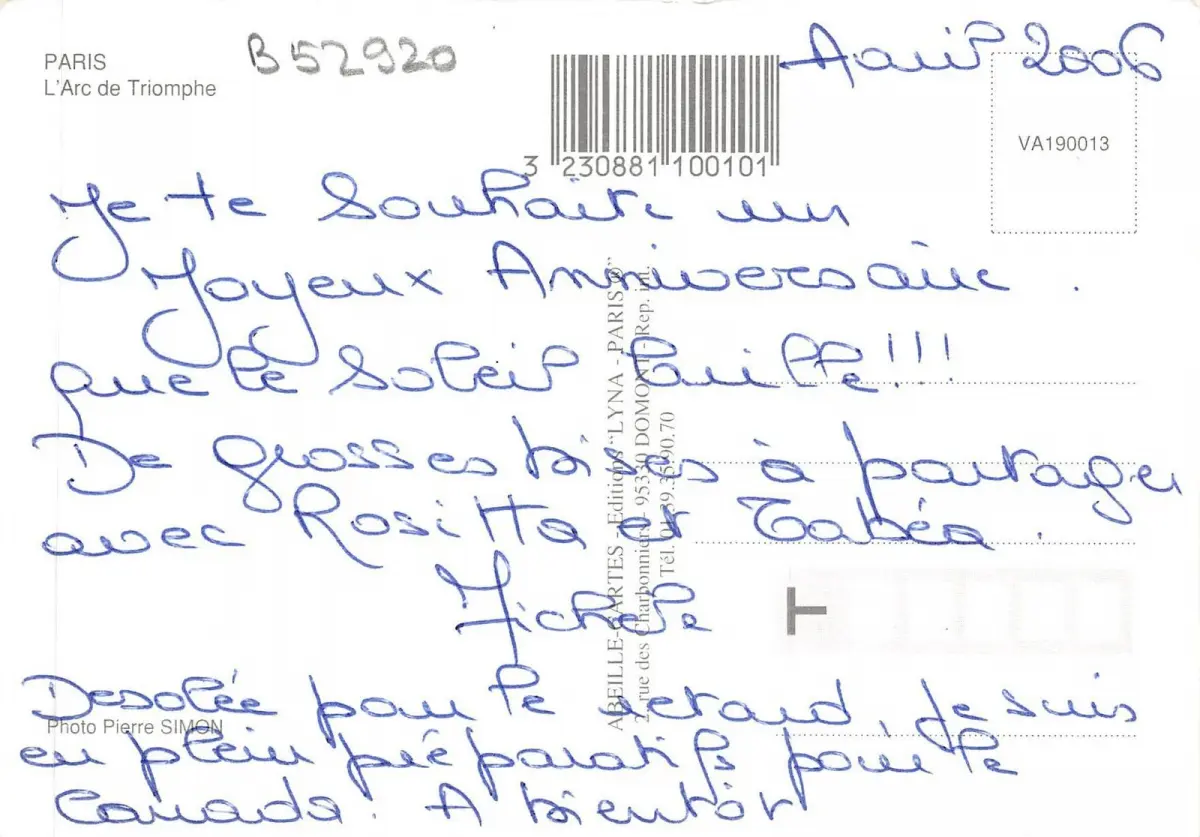 PARIS
L'Arc de Triomphe
B52920
Avril 2006
3 230881 100101
VA190013
Je te souhaite un
Joyeux Anniversaire.
que le soleil brille!!!
De grosses bises à partager
avec Rositta et Tabéa.
Michele
Desolée pour le retard, je suis
en plein préparatifs pour le
Canada. A bientôt
Photo Pierre SIMON
ABEILLE-CARTES - Editions "LYNA - PARIS
rue des Charbonniers - 95330 DOMONT - Rep. int.
Tél. 01.39.90.70